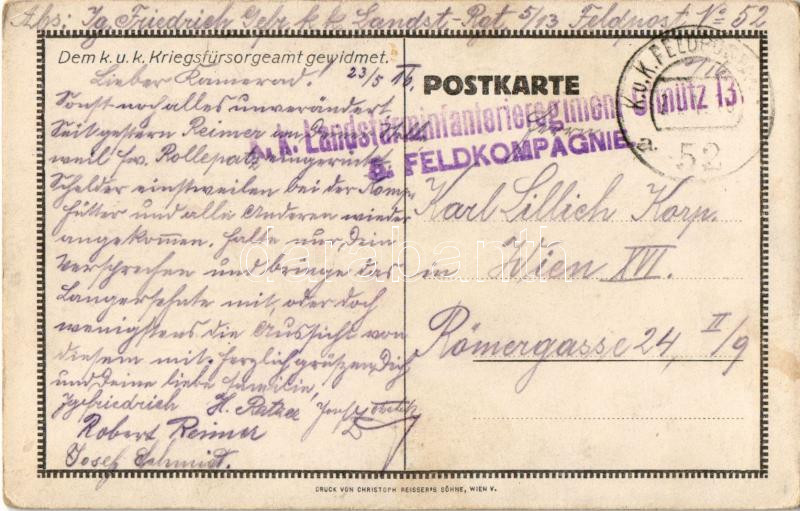 Abs: Ig. Friedrich Gefr. k. k. Landst-Rgt. 5/13 Feldpost No 52
Dem k. u. k. Kriegsfürsorgeamt gewidmet.
23/5 16.
Lieber Kamerad!
Sonst noch alles unverändert
Seit gestern Reimer an Stelle
weil Rollepatz eingerückt
Schelder einstweilen bei der Komp.
Hütter und alle Anderen wieder
angekommen. Halte nur Dein
Versprechen und bringe das
Langersehnte mit, oder doch
wenigstens die Aussicht von
diesem mit. Herzlich grüßen Dich
und Deine liebe Familie,
Ig. Friedrich H. Josef
Robert Reimer
Josef Schmidt.
POSTKARTE
k. k. Landsturminfanterieregiment Olmütz 13.
5. FELDKOMPAGNIE
K.u.K. FELDPOSTAMT
a.
52
Herrn
Karl Lillich Korp.
in Wien XVI.
Römergasse 24, II/9
darabanth
DRUCK VON CHRISTOPH REISSER'S SÖHNE, WIEN V.